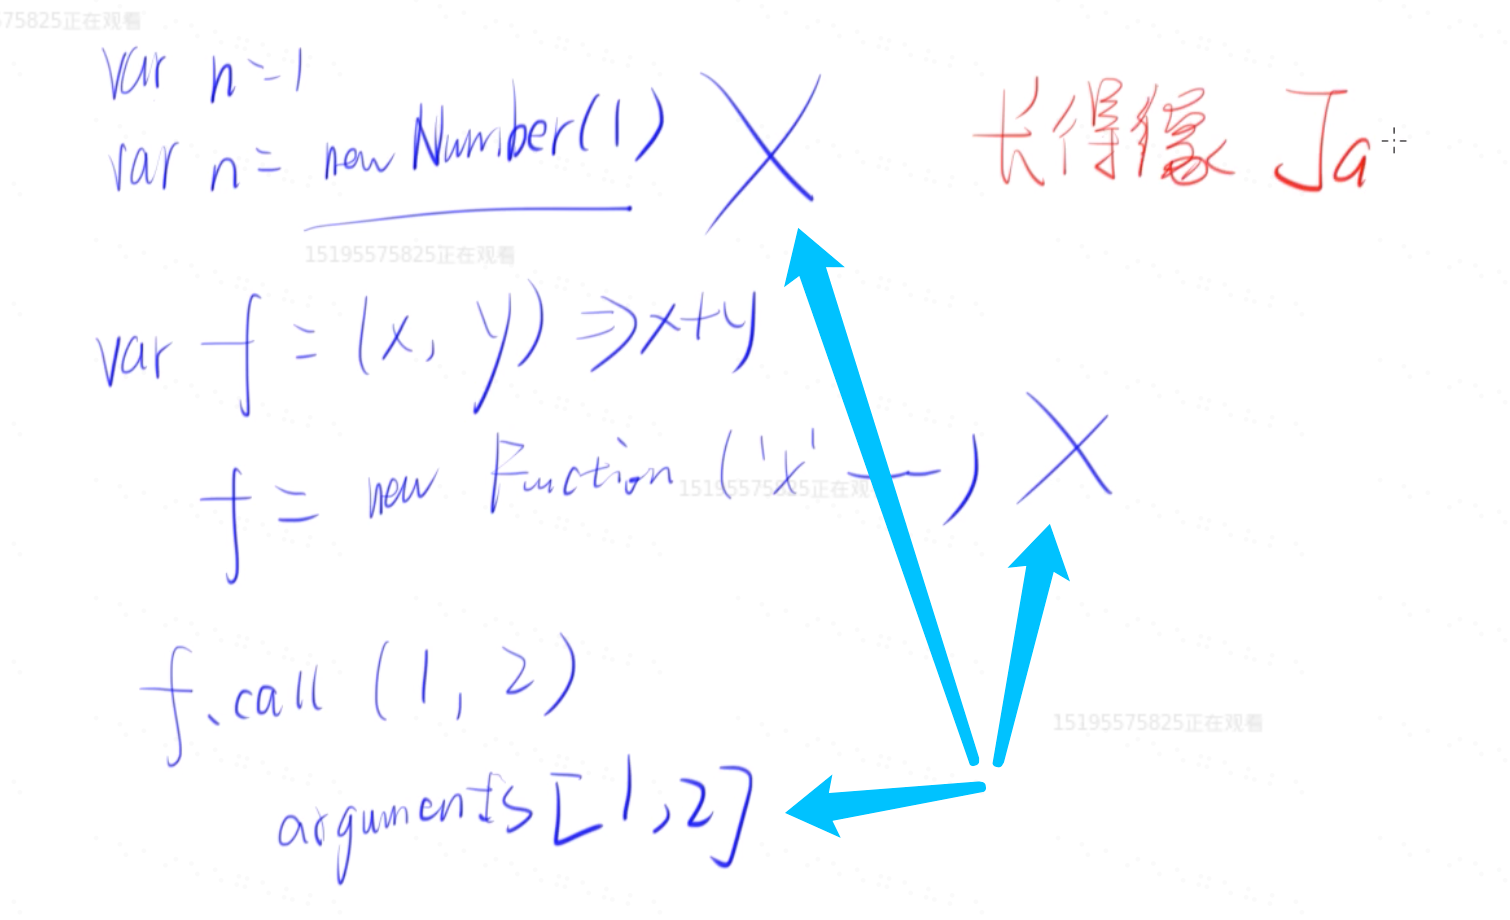 75825正在观看
var n = 1
var n = new Number(1) X
长得像 Ja
15195575825正在观看
var f = (x, y) => x+y
f = new Function ('x' —) X
15195575825正在观
f.call (1, 2)
15195575825正在观看
arguments [1,2]